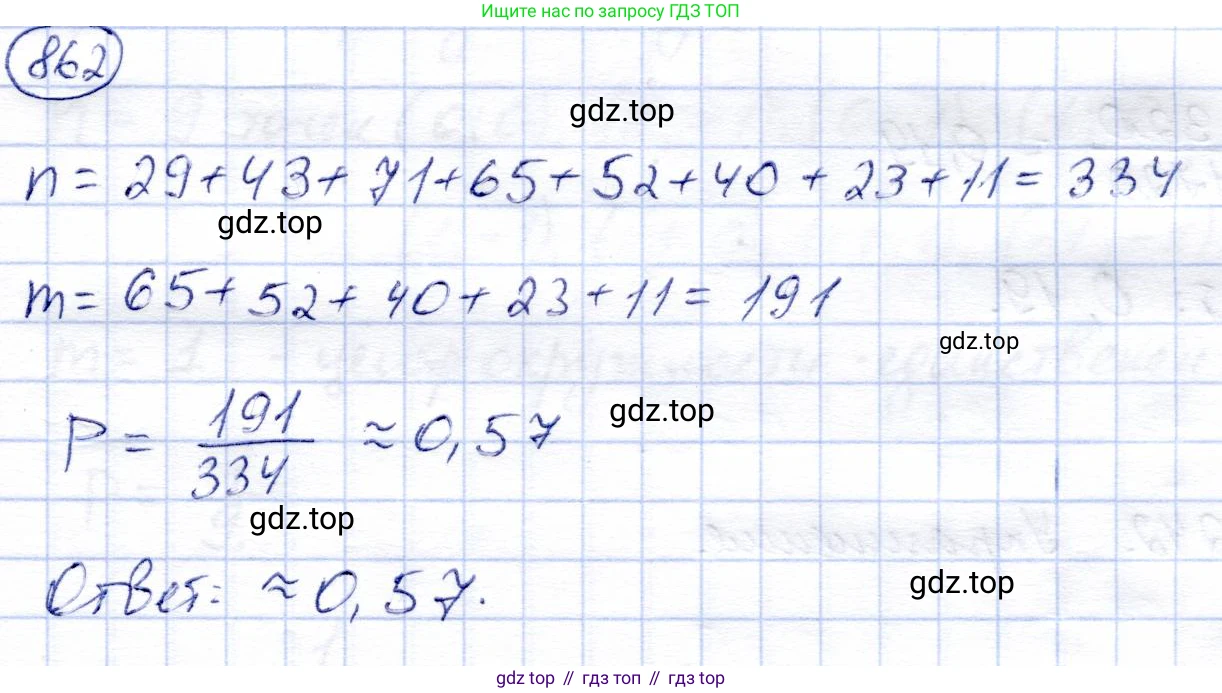 Ищите нас по запросу ГДЗ ТОП
862
gdz.top
n = 29 + 43 + 71 + 65 + 52 + 40 + 23 + 11 = 334
gdz.top
m = 65 + 52 + 40 + 23 + 11 = 191
gdz.top
P = 191/334 ≈ 0,57
gdz.top
gdz.top
Ответ: ≈ 0,57.
gdz.top
gdz top // гдз топ // gdz top